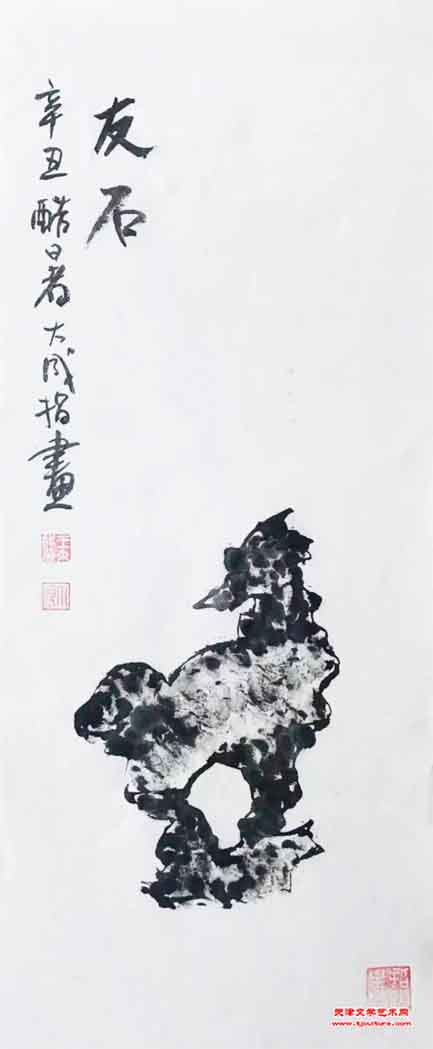 友石
辛丑酷暑大成指畫
天津文学艺术网
www.tjculture.com